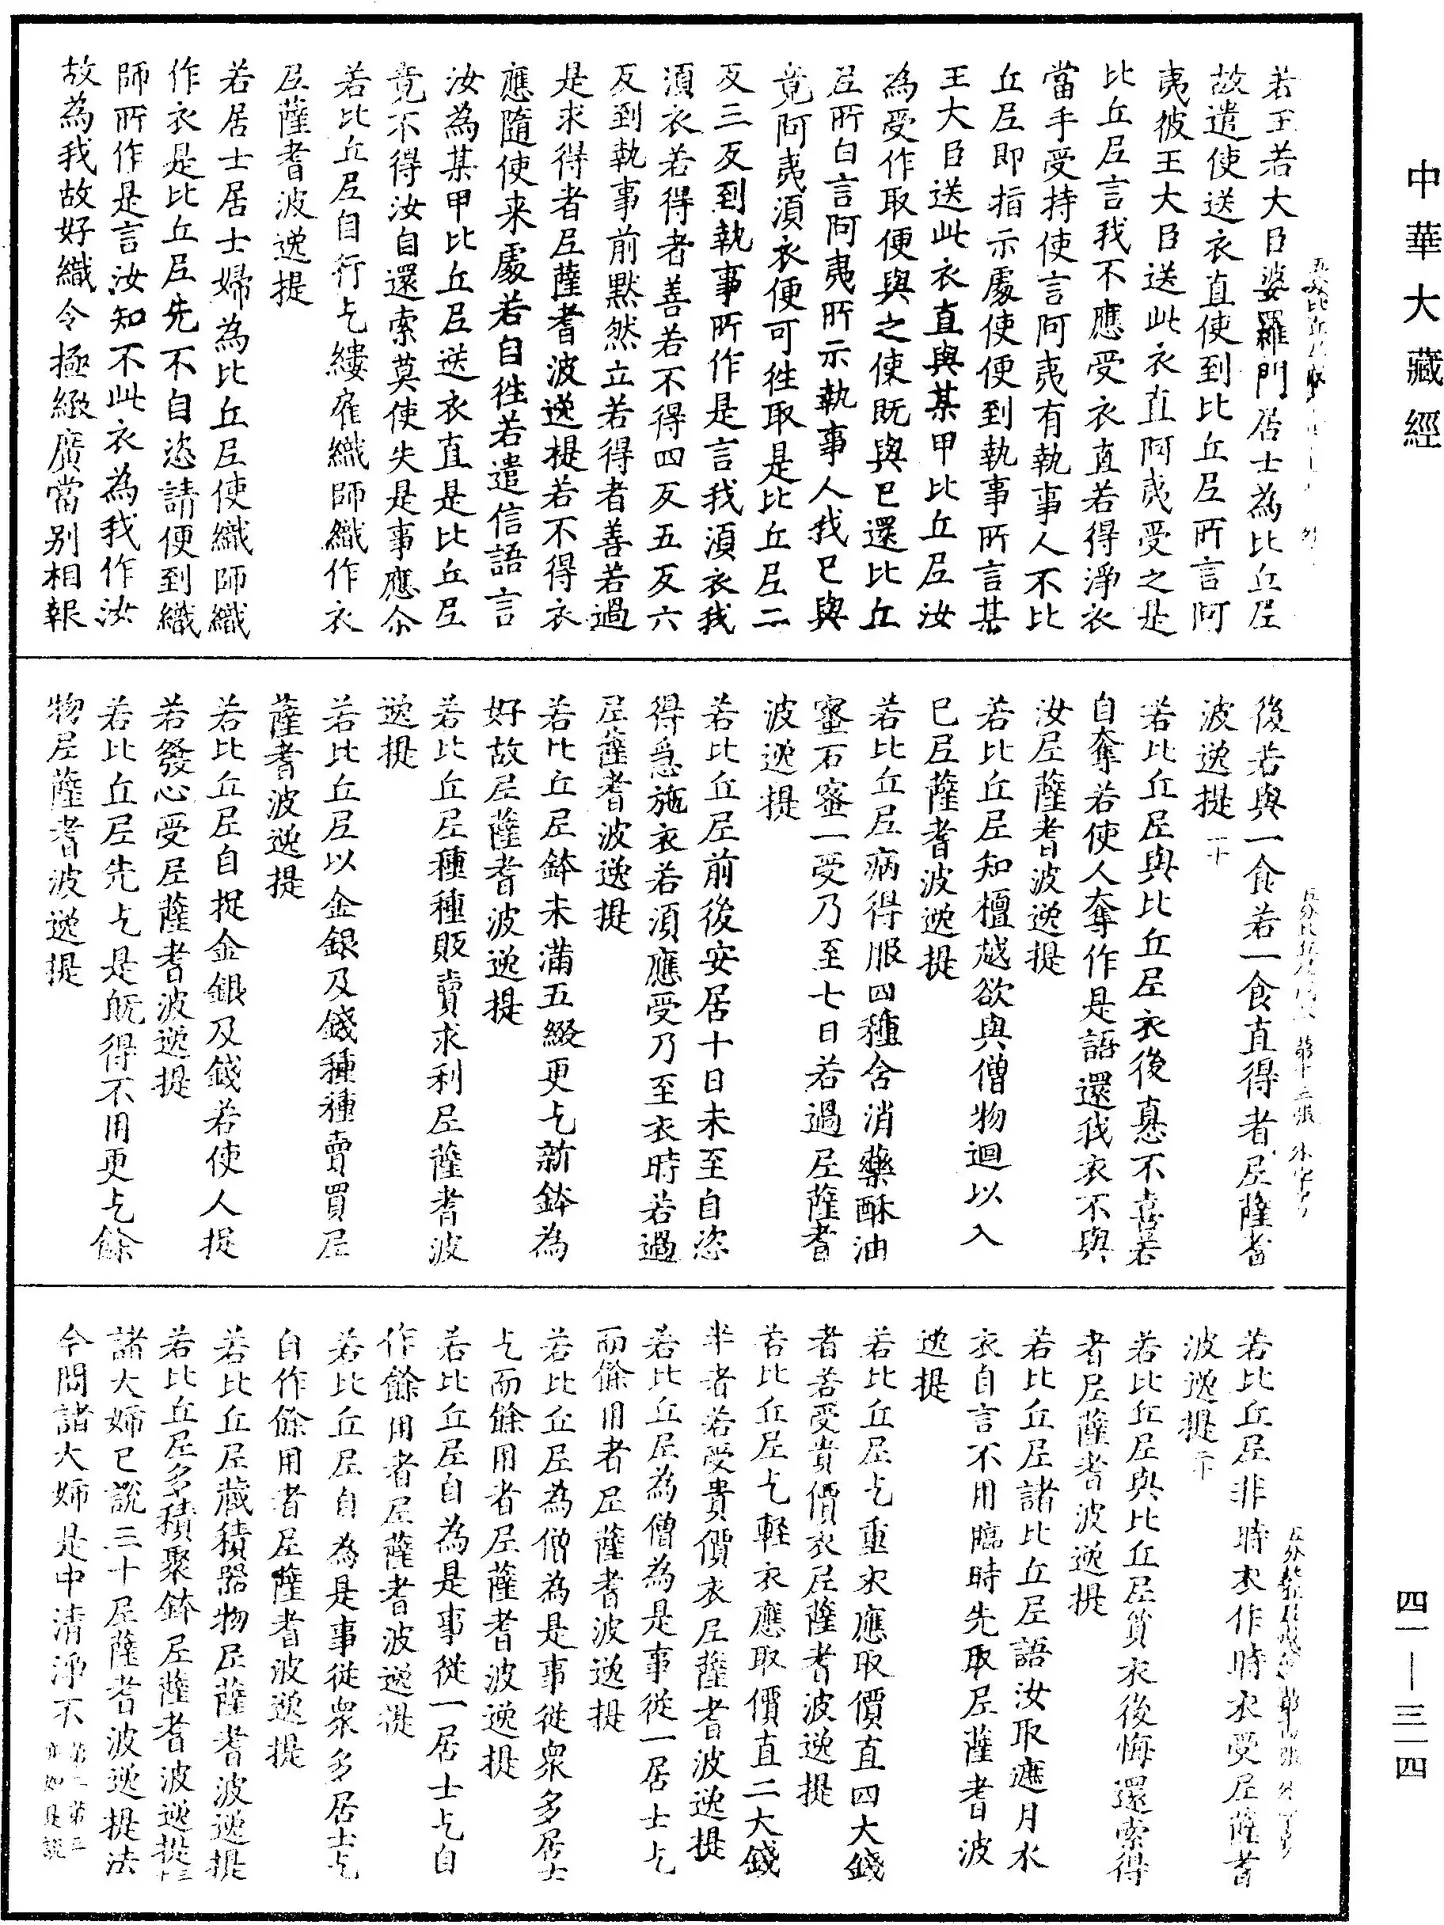 中華大藏經
若王若大臣婆羅門居士為比丘尼
故遣使送衣直使到比丘尼所言阿
夷彼王大臣送此衣直阿夷受之是
比丘尼言我不應受衣直若得淨衣
當手受持使言阿夷有執事人不比
丘尼即指示處使便到執事所言某
王大臣送此衣直與某甲比丘尼汝
為受作取便與之使既與已還比丘
尼所白言阿夷所示執事人我已與
竟阿夷湏衣便可往取是比丘尼二
反三反到執事所作是言我湏衣我
湏衣若得者善若不得四反五反六
反到執事前默然立若得者善若過
是求得者尼薩耆波逸提若不得衣
應隨使来處若自往若遣信語言
汝為某甲比丘尼送衣直是比丘尼
竟不得汝自還索莫使失是事應尒
若比丘尼自行乞縷雇織師織作衣
尼薩耆波逸提
若居士居士婦為比丘尼使織師織
作衣是比丘尼先不自恣請便到織
師所作是言汝知不此衣為我作汝
故為我故好織令極緻廣當別相報
後若與一食若一食直得者尼薩耆
波逸提一十
若比丘尼與比丘尼衣後恚不喜若
自奪若使人奪作是語還我衣不與
汝尼薩耆波逸提
若比丘尼知檀越欲與僧物迴以入
已尼薩耆波逸提
若比丘尼病得服四種含消藥酥油
蜜石蜜一受乃至七日若過尼薩耆
波逸提
若比丘尼前後安居十日未至自恣
得急施衣若湏應受乃至衣時若過
尼薩耆波逸提
若比丘尼鉢未滿五綴更乞新鉢為
好故尼薩耆波逸提
若比丘尼種種販賣求利尼薩耆波
逸提
若比丘尼以金銀及錢種種賣買尼
薩耆波逸提
若比丘尼自捉金銀及錢若使人捉
若發心受尼薩耆波逸提
若比丘尼先乞是既得不用更乞餘
物尼薩耆波逸提
若比丘尼非時衣作時衣受尼薩耆
波逸提二十
若比丘尼與比丘尼貿衣後悔還索得
者尼薩耆波逸提
若比丘尼諸比丘尼語汝取遮月水
衣自言不用臨時先取尼薩耆波
逸提
若比丘尼乞重衣應取價直四大錢
者若受貴價衣尼薩耆波逸提
若比丘尼乞輕衣應取價直二大錢
半者若受貴價衣尼薩耆波逸提
若比丘尼為僧為是事從一居士乞
而餘用者尼薩耆波逸提
若比丘尼為僧為是事從衆多居士
乞而餘用者尼薩耆波逸提
若比丘尼自為是事從一居士乞自
作餘用者尼薩耆波逸提
若比丘尼自為是事從衆多居士乞
自作餘用者尼薩耆波逸提
若比丘尼藏積器物尼薩耆波逸提
若比丘尼多積聚鉢尼薩耆波逸提
諸大姉已說三十尼薩耆波逸提法
今問諸大姉是中清淨不第二第三亦如是說
四一—三一四